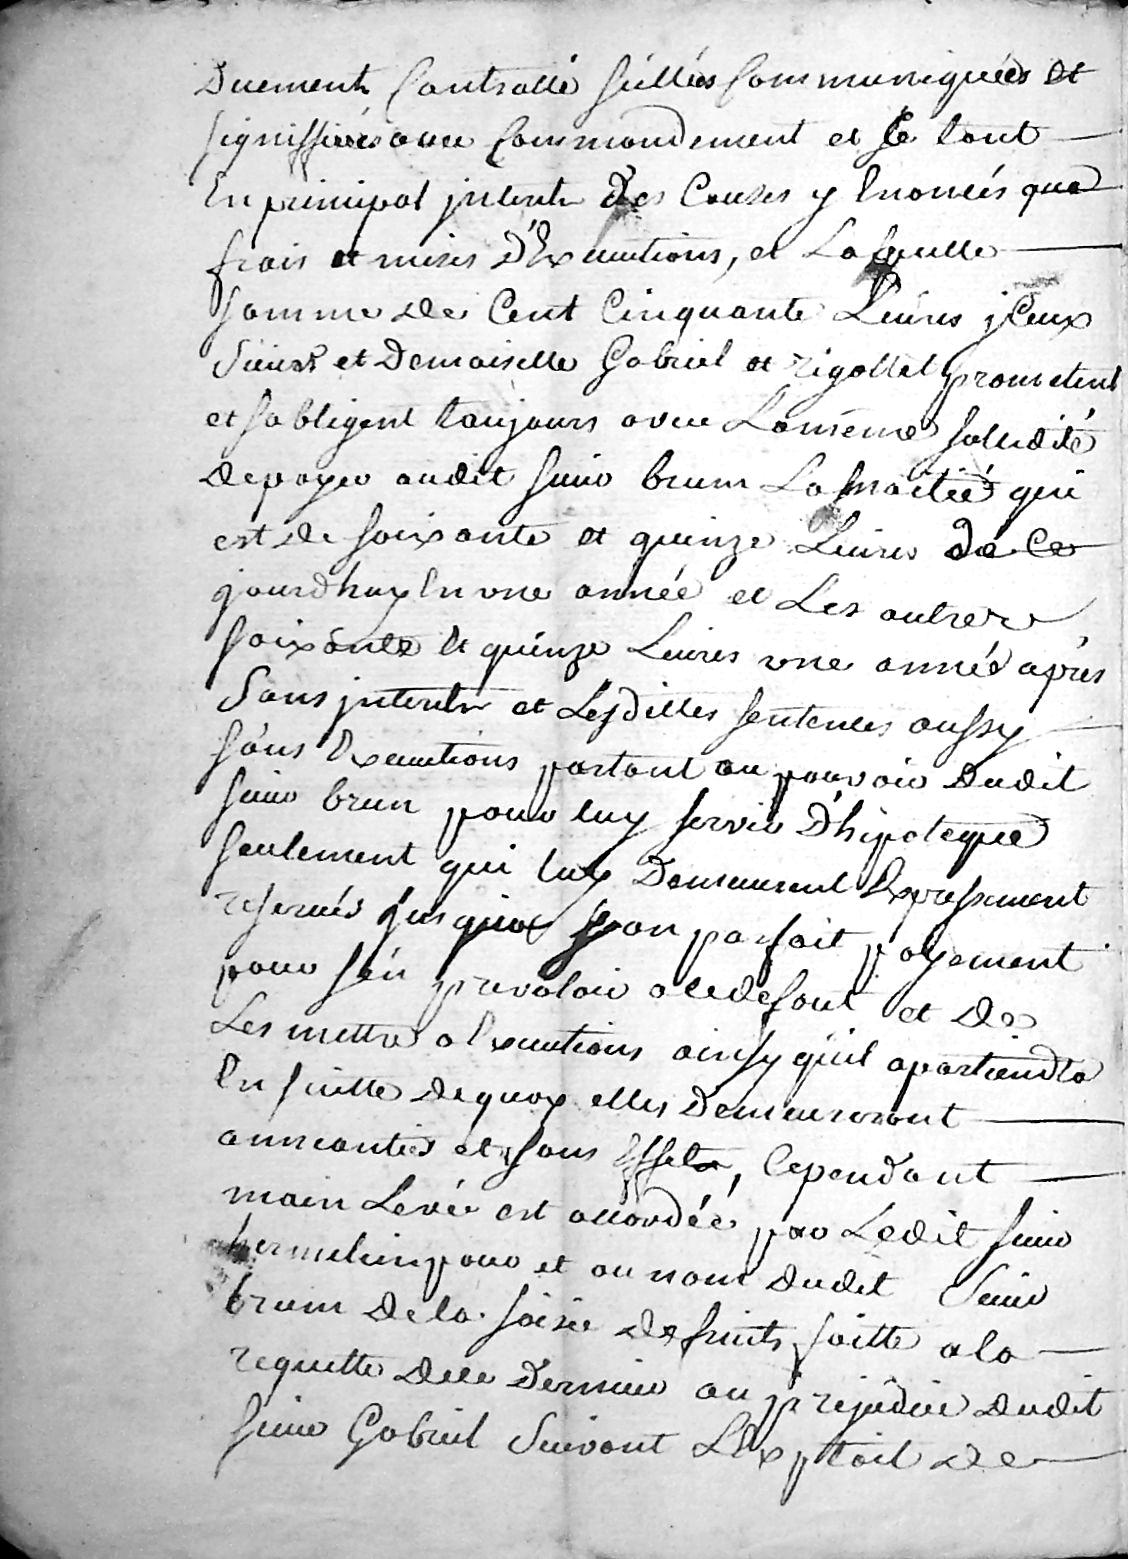 Duement Controllé sçellées Communiquées et
signiffiées avec Commandement et le tout
En principal interets des Causes y Enoncés que
frais et mises D'Executions, et Laquelle
somme de Cent Cinquante Livres iceux
Sieurs et Demoiselle Gabriel et rigollet prometent
et sobligent toujours avec Lameme sollidité
depayer audit sieur brun La moitié qui
est de soixante et quinze Livres de Ce
jourdhuy En une année et Les autres
soixante et quinze Livres une année après
Sans interets et Lesdittes sentences aussy
sans Executions partant au pouvoir Dudit
sieur brun pour luy servir D'hipoteque
seulement qui luy Demeurent Expressement
reservés jusqua son parfait payement
pour sen prevaloir a cedefaut et de
Les mettre a Executions ainsy quil apartiendra
En suitte dequoy elles Demeureront
anneanties et sans Effets, Cependant
main Levée est accordée par Ledit sieur
hermelin pour et au nom dudit Sieur
brun De la saisie defruits faitte a la
requette dece Dernier au prejudice dudit
sieur Gabriel Suivant LExploit de